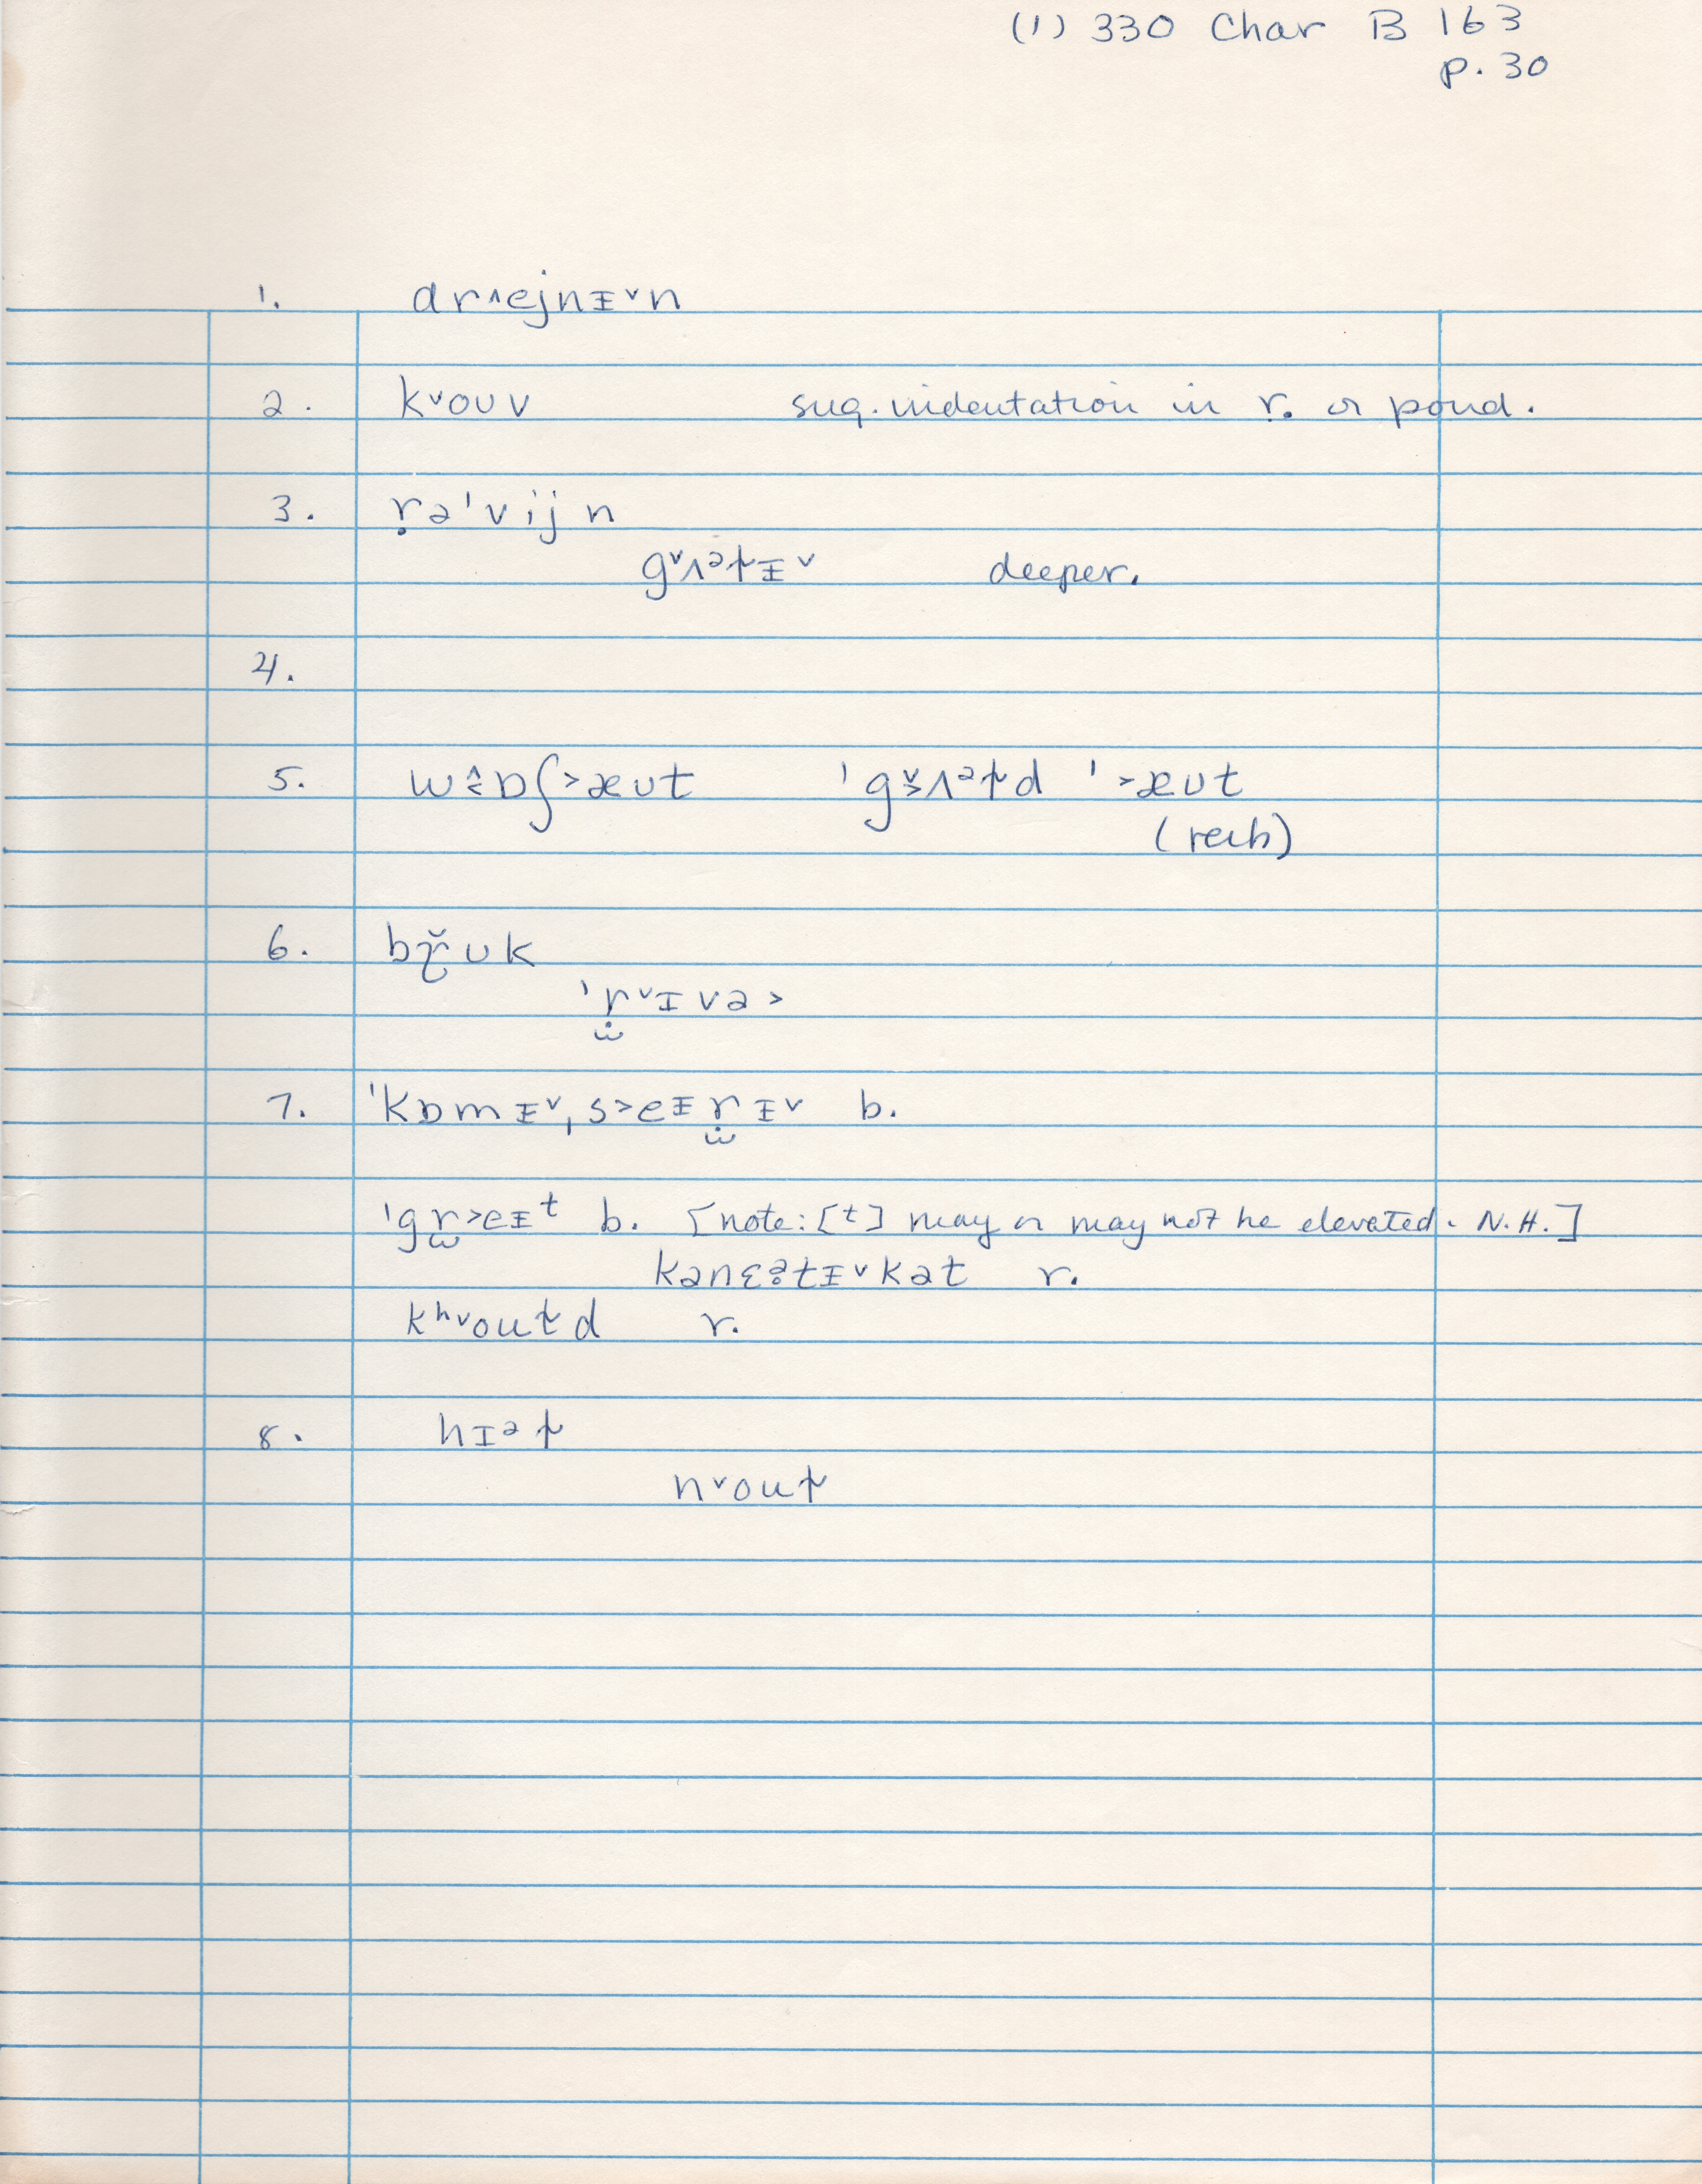 (1) 330 Char B 163
p. 30
1. dr˄ejnᵻ˅n
2. k˅oʊv sug. indentation in r. or pond.
3. ṛəˈvijn
g˅ʌᵊɫᵻ˅ deeper.
4.
5. wɒʃ˃æʊt ˈgʌᵊɫd ˈ˃æʊt
(recb)
6. bʊk
ˈr˅ɪvə˃
7. ˈkɒmᵻ˅ˌs˃eᵻrᵻ˅ b.
ˈgr˃eᵻᵗ b. [note: [t] may or may not be elevated. N.H.]
kənɛətᵻ˅kət r.
kʰ˅ouɫd r.
8. hɪᵊɫ
n˅ouɫ